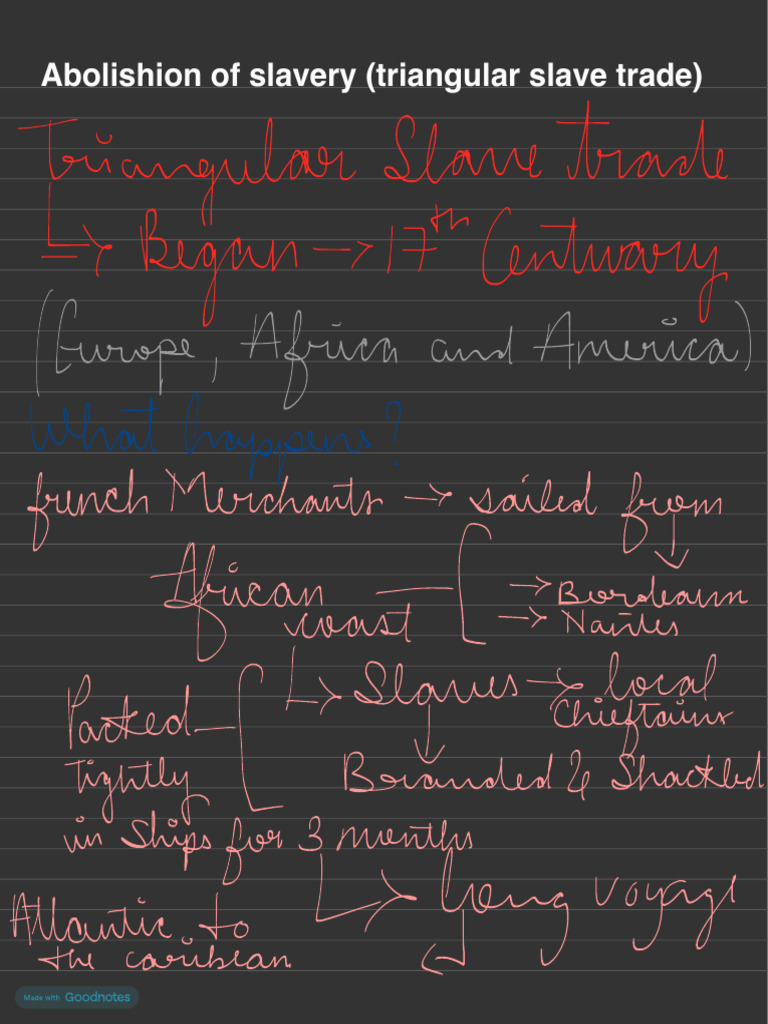 Abolishion of slavery (triangular slave trade)
Triangular Slave trade
↳ Began → 17th Centuary
(Europe, Africa and America)
What happens?
french Merchants → sailed from
African coast → Bordeaum
→ Nantes
↳ Slaves → local Chieftains
Branded & Shackled
Packed Tightly
in Ships for 3 months
↳ long voyage
Atlantic to
the caribbean
Made with Goodnotes